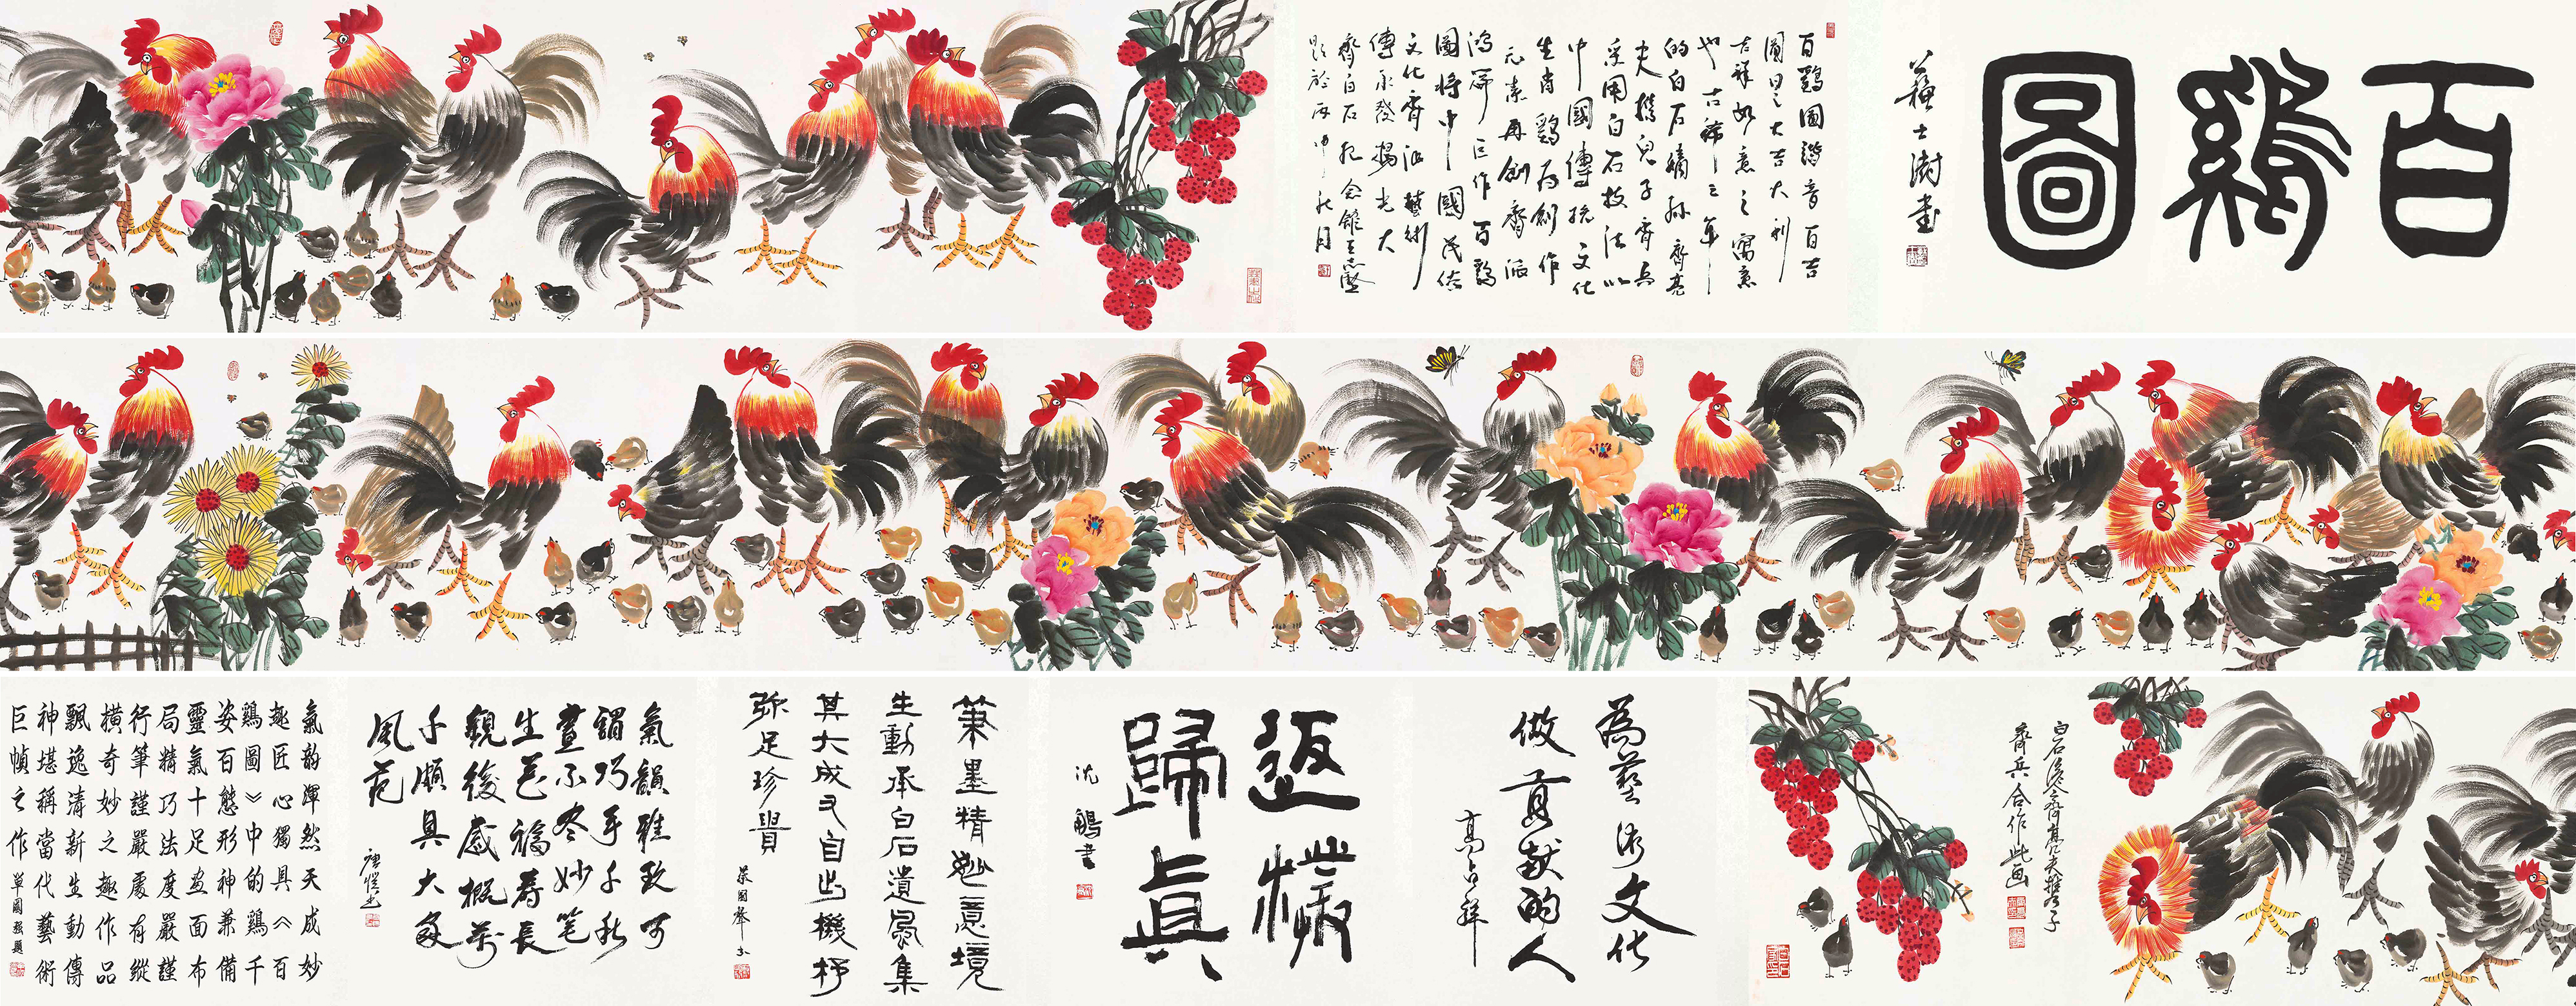 百鷄圖
蘇士澍書
百鷄圖諧音百吉
圖曰之大吉大利
吉祥如意之寓意
也古稀之年
的白石嫡孫齊亮
夫携兒子齊兵
采用白石技法以
中國傳統文化
生肖鷄為創作
元素再創齊派
鴻篇巨作百鷄
圖將中國民俗
文化齊派藝術
傳承發揚光大
齊白石紀念館王志堅
題於丙申秋月
齊兵合作此画
為藝術文化
做貢獻的人
高占祥
返樸
歸真
沈鵬書
筆墨精邈意境
生動承白石遺風集
其大成又自出機杼
弥足珍貴
蔡國聲
氣韻雅致可
謂巧手千秋
畫不尽妙笔
生花福寿長
觀後感概萬
千頗具大家
風范
氣韵渾然天成妙
趣匠心獨具《百
鷄圖》中的鷄千
姿百態形神兼備
靈氣十足画面布
局精巧法度嚴謹
行筆謹嚴處有縱
横奇妙之趣作品
飄逸清新生動傳
神堪稱當代藝術
巨幀之作
單國強題